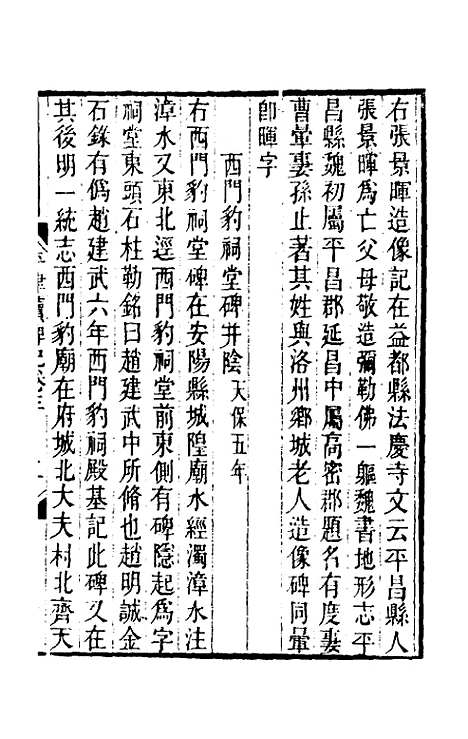 右張景暉造像記在益都縣法慶寺文云平昌縣人
張景暉爲亡父母敬造彌勒佛一軀魏書地形志平
昌縣魏初屬平昌郡延昌中屬高密郡題名有度妻
曹暈妻孫止著其姓與洛州鄉城老人造像碑同暈
卽暉字
西門豹祠堂碑并陰天保五年
右西門豹祠堂碑在安陽縣城隍廟水經濁漳水注
漳水又東北逕西門豹祠堂前東側有碑隱起爲字
祠堂東頭石柱勒銘曰趙建武中所脩也趙明誠金
石錄有僞趙建武六年西門豹祠殿基記此碑又在
其後明一統志西門豹廟在府城北大夫村北齊天